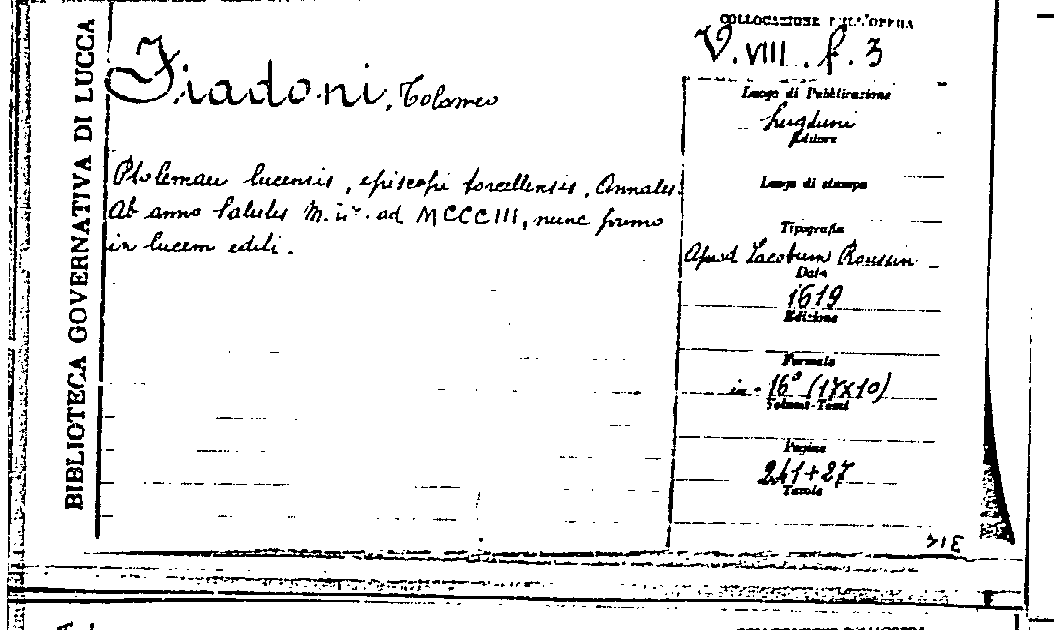 BIBLIOTECA GOVERNATIVA DI LUCCA
Fiadoni, Tolomeo
Ptolemaei lucensis, episcopi torcellensis, Annales.
Ab anno salutis ad MCCCIII, nunc primo
in lucem editi.
COLLOCAZIONE DELL'OPERA
V. VIII. f. 3
Luogo di Pubblicazione
Lugduni
Editore
Luogo di stampa
Tipografia
Apud Iacobum Roussin
Data
1619
Edizione
Formato
in-16° (17x10)
Volumi-Tomi
Pagine
241+27
Tavole
COLLOCAZIONE DELL'OPERA